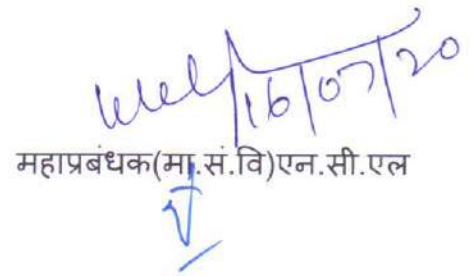 16/07/20
महाप्रबंधक(मा.सं.वि)एन.सी.एल